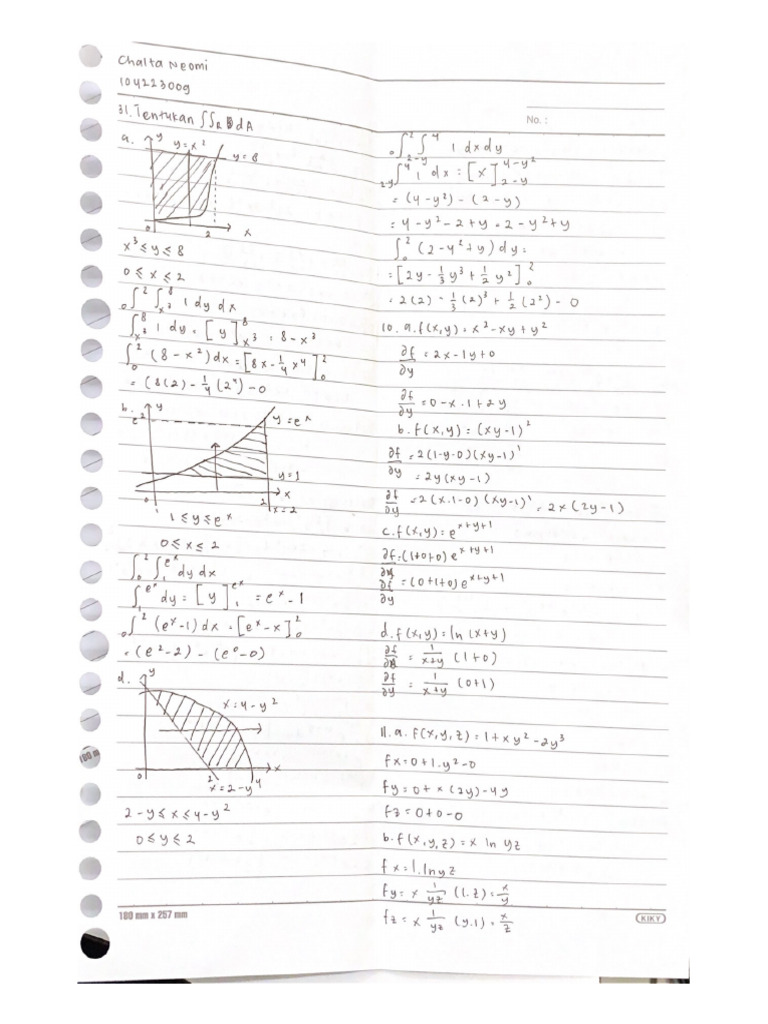 Chalta Neomi
104223009
31. Tentukan ∫∫R dA
a.
y
y = x²
y = 8
0
2
x
x³ ≤ y ≤ 8
0 ≤ x ≤ 2
0∫² ∫x³⁸ 1 dy dx
∫x³⁸ 1 dy = [y]x³⁸ = 8 - x³
∫0² (8 - x²) dx = [8x - 1/4 x⁴]0²
= (8(2) - 1/4 (2⁴) - 0
b.
y
e²
y = eˣ
y = 1
0
1
2
x
x = 2
1 ≤ y ≤ eˣ
0 ≤ x ≤ 2
∫0² ∫1^eˣ dy dx
∫1^eˣ dy = [y]1^eˣ = eˣ - 1
0∫² (eˣ - 1) dx = [eˣ - x]0²
= (e² - 2) - (e⁰ - 0)
d.
y
x = 4 - y²
0
2
4
x
x = 2 - y
2 - y ≤ x ≤ 4 - y²
0 ≤ y ≤ 2
180 mm x 257 mm
No. :
0∫² ∫2-y⁴ 1 dx dy
2y∫⁴ 1 dx = [x]2-y^4-y²
= (4 - y²) - (2 - y)
= 4 - y² - 2 + y = 2 - y² + y
∫0² (2 - y² + y) dy =
= [2y - 1/3 y³ + 1/2 y²]0²
= 2(2) - 1/3 (2)³ + 1/2 (2²) - 0
10. a. f(x,y) = x² - xy + y²
∂f/∂y = 2x - 1y + 0
∂f/∂y = 0 - x . 1 + 2y
b. f(x,y) = (xy - 1)²
∂f/∂y = 2(1-y-0)(xy-1)¹
= 2y(xy - 1)
∂f/∂y = 2(x.1-0)(xy-1)¹ = 2x(2y-1)
c. f(x,y) = e^x+y+1
∂f = (1+0+0) e^x+y+1
∂f/∂y = (0+1+0) e^x+y+1
d. f(x,y) = ln (x+y)
∂f = 1/x+y (1+0)
∂f/∂y = 1/x+y (0+1)
11. a. f(x,y,z) = 1 + xy² - 2y³
fx = 0 + 1.y² - 0
fy = 0 + x(2y) - 4y
fz = 0 + 0 - 0
b. f(x,y,z) = x ln yz
fx = 1. ln yz
fy = x 1/yz (1.z) = x/y
fz = x 1/yz (y.1) = x/z
KIKY